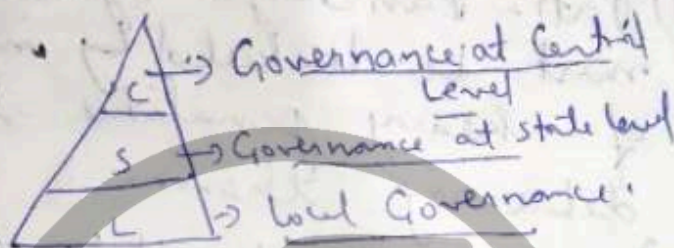 C → Governance at Central Level
S → Governance at state level
L → Local Governance.